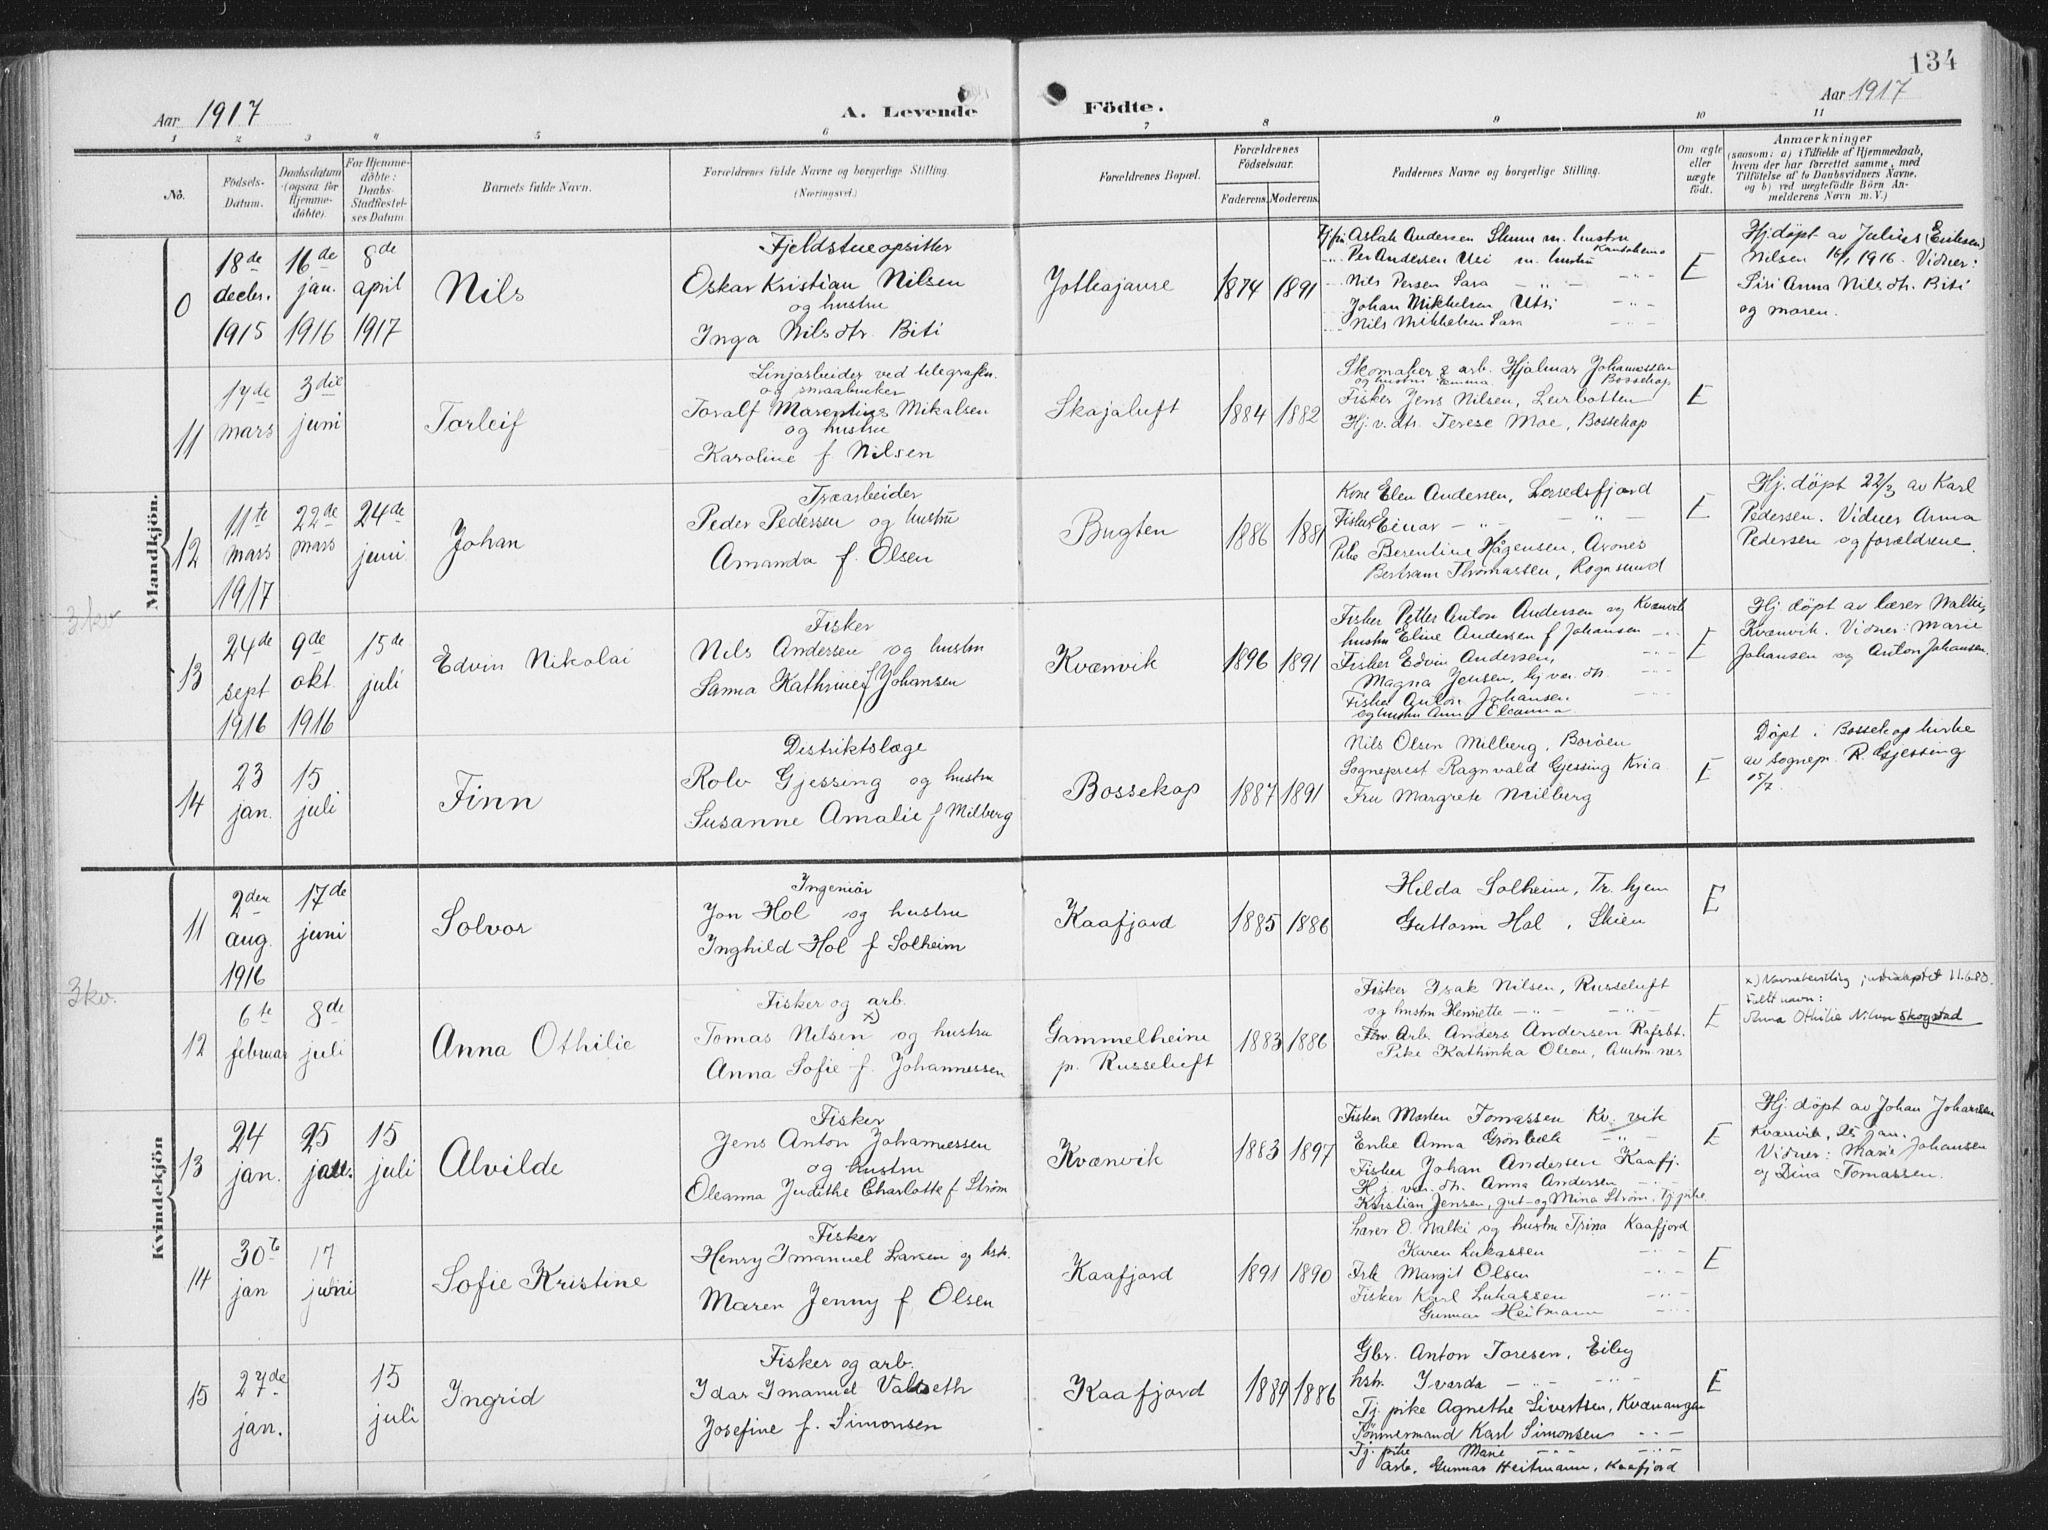 134
Aar 1917
A. Levende
Födte.
Aar 1917
1 2 3 4 5 6 7 8 9 10 11
No.
Födsels-Datum.
Daabsdatum (ogsaa for Hjemmedöbte).
For Hjemmedöbte: Daabs-Stadfestelses Datum
Barnets fulde Navn.
Forældrenes fulde Navne og borgerlige Stilling.
(Næringsvei.)
Forældrenes Bopæl.
Forældrenes Födselsaar.
Faderens. Moderens.
Faddernes Navne og borgerlige Stilling.
Om ægte eller uægte födt.
Anmærkninger
(saasom: a) i Tilfælde af Hjemmedaab, hvem der har forrettet samme, med Tilföielse af to Daabsvidners Navne, og b) ved uegtefödte Börn Anmelderens Navn m. V.)
Mandkjön.
0
18de decbr. 1915
16de jan. 1916
8de april 1917
Nils
Fjeldstueopsitter
Oskar Kristian Nilsen
og hustru
Inga Nilsdtr. Biti
Jotkajavre
1874 1891
Aslak Andersen m. hustru
Per Andersen Utsi m. hustru
Nils Persen Sara
Johan Mikkelsen Utsi
Nils Mikkelsen Sara
E
Hj. döpt av Julius (Eriksen)
Nilsen 16/1 1916. Vidner:
Siri Anna Nilsdtr. Biti
og moren.
11
17de mars
3die juni
Torleif
Linjarbeider ved telegrafen.
og smaabruker
Toralf Marentius Mikalsen
og hustru
Karoline f Nilsen
Skajaluft
1884 1882
Skomaker & arb. Hjalmar Johannessen
og hustru Emma. Bossekop
Fisker Jens Nilsen, Lerbotten
Hj. v. dtr. Terese Moe, Bossekop
E
12
11te mars 1917
22de mars
24de juni
Johan
Træarbeider
Peder Pedersen og hustru
Amanda f. Olsen
Bugten
1886 1881
Kone Elen Andersen, Lerredsfjord
Fisker Einar - " - - " -
Pike Berentine Hågensen, Arones
Bertram Thomassen, Rognsund
E
Hj. döpt 22/3 av Karl
Pedersen. Vidner Anna
Pedersen og forældrene.
3 kv
13
24de sept 1916
9de okt. 1916
15de juli
Edvin Nikolai
Fisker
Nils Andersen og hustru
Sanna Kathrine f Johansen
Kvænvik
1896 1891
Fisker Petter Anton Andersen og Kvænvik
hustru Eline Andersen f Johansen
Fisker Edvin Andersen,
Magna Jensen, hj. v. dtr.
Fisker Anton Johansen
og hustru Ann Eleanna
E
Hj. döpt av lærer Nalki,
Kvænvik. Vidner: Marie
Johansen og Anton Johansen.
14
23 jan.
15 juli
Finn
Distriktslæge
Rolv Gjessing og hustru
Susanne Amalie f Milberg
Bossekop
1887 1891
Nils Olsen Milberg, Boröen
Sogneprest Ragnvald Gjessing Kria
Fru Margrete Milberg
E
Döpt i Bossekop kirke
av sognepr. R. Gjessing
15/7.
Kvindekjön
11
2den aug. 1916
17de juni
Solvor
Ingeniör
Jon Hol og hustru
Inghild Hol f Solheim
Kaafjord
1885 1886
Hilda Solheim, Tr. hjem
Guttorm Hol, Skien
E
3 kv.
12
6te februar
8de juli
Anna Othilie
Fisker og arb.
x)
Tomas Nilsen og hustru
Anna Sofie f. Johannessen
Gammelheine
p. Russeluft
1883 1886
Fisker Isak Nilsen, Russeluft
og hustru Henriette - " -
Arb. Anders Andersen Rafsbt.
Pike Kathinka Olsen,
E
x) Navnebevilling 11.6.80.
Fullt navn:
Anna Othilie Nilsen Skogstad
13
24 jan.
25 jan.
15 juli
Alvilde
Fisker
Jens Anton Johannessen
og hustru
Oleanna Judithe Charlotte f Ström
Kvænvik
1883 1897
Fisker Morten Tomassen Kv. vik
Enke Anna Grönbæk - " -
Fisker Johan Andersen Kaafj.
Hj. vær. dtr. Anna Andersen
Kristian Jensen, gut - og Mina Ström, Tj. pike
E
Hj. döpt av Johan Johansen
Kvænvik, 25 jan.
Vidner: Marie Johansen
og Dina Tomassen.
14
30te jan
17 juni
Sofie Kristine
Fisker
Henry Imanuel Larsen og hstr.
Maren Jenny f Olsen
Kaafjord
1891 1890
Lærer O. Nalki og hustru Trina Kaafjord
Karen Lukassen
Frk Margit Olsen
Fisker Karl Lukassen
Gunnar Heitmann
E
15
27de jan.
15 juli
Ingrid
Fisker og arb.
Idar Imanuel Valseth
Josefine f. Simonsen
Kaafjord
1889 1886
Gbr. Anton Toresen, Eiby
hstr. Ivarda - " -
Tj. pike Agnethe Sivertsen, Kvænangen
Tömmermand Karl Simonsen
Tj. pike Marie
arb. Gunnar Heitmann, Kaafjord
E